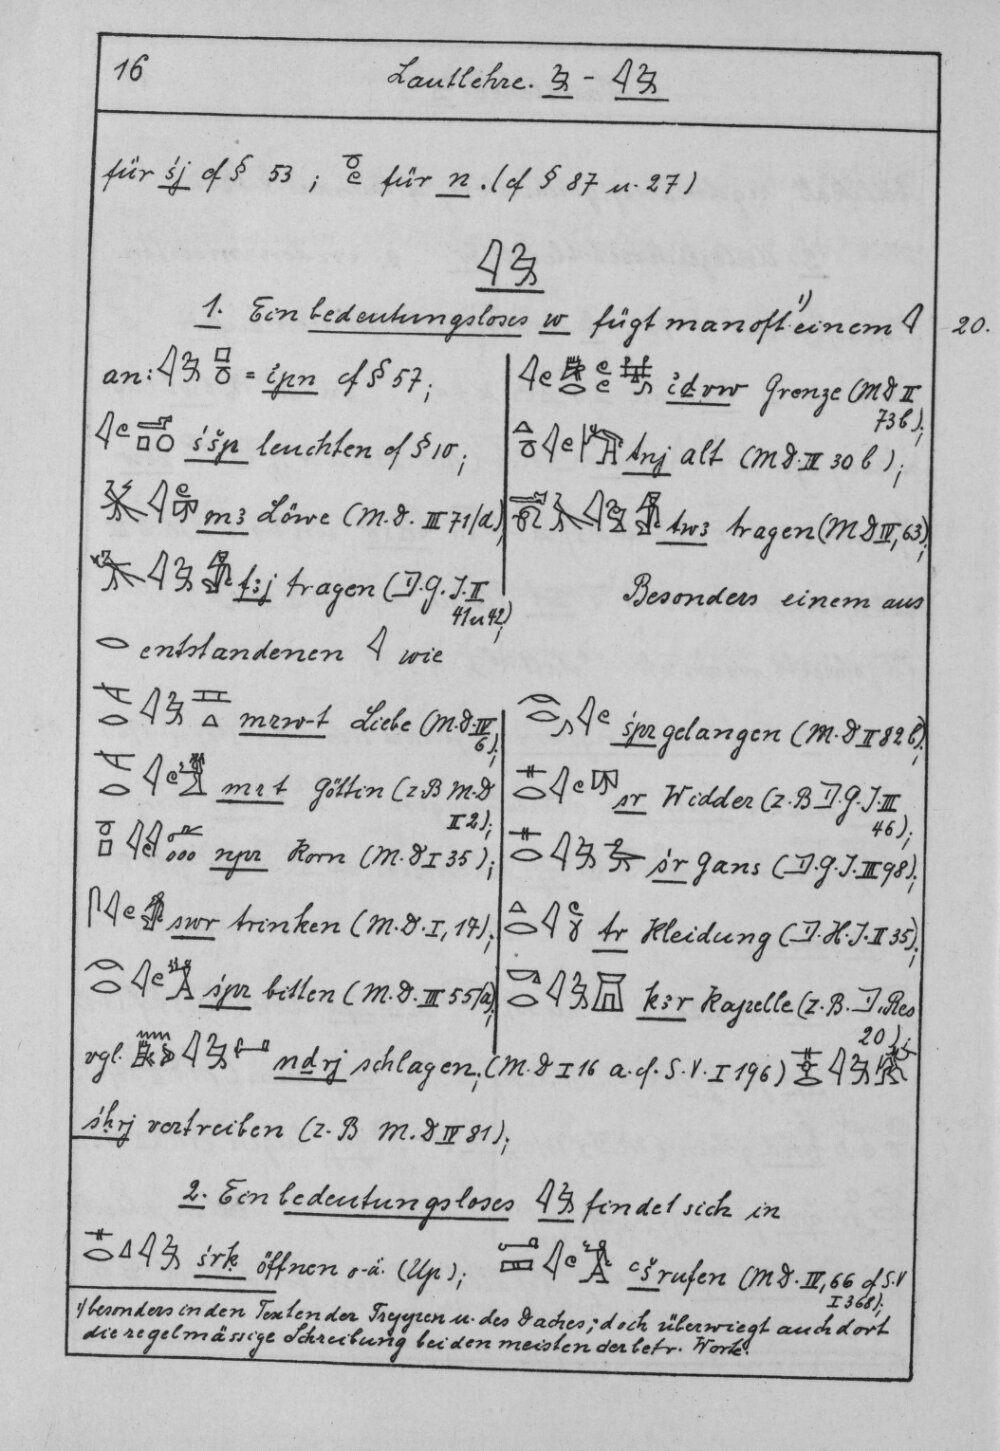 16 Lautlehre. 𓅱 - 𓇋𓅱
für śj cf § 53 ; für n. (cf § 87 u. 27)
𓇋𓅱
1. Ein bedeutungsloses w fügt man oft ¹) einem 𓇋 20.
an: 𓇋𓅱𓊪𓏌 = ipn cf § 57;
śšp leuchten cf § 10;
mꜣ Löwe (M.D. III 71/d);
fꜣj tragen (D.G.J. II
41 u 42);
idrw Grenze (MD II
73b);
tnj alt (MD. III 30 b);
twꜣ tragen (MD IV, 63);
Besonders einem aus
𓂋 entstandenen 𓇋 wie
mrw-t Liebe (M.D. IV
6);
mr t Göttin (z.B M.D
II 2);
npr Korn (M.D I 35);
swr trinken (M.D. I, 17);
śpr bitten (M.D. III 55/a);
śpr gelangen (M.D II 82 b);
sr Widder (z.B D.G.J. III
46);
śr Gans (D.G.J. III 98);
tr Kleidung (D.H.J. II 35);
kꜣr Kapelle (z.B. D.Res
20);
vgl. nḏrj schlagen, (M.D I 16 a. cf. S.V. I 196)
śḥrj vertreiben (z.B M.D IV 81);
2. Ein bedeutungsloses 𓇋𓅱 findet sich in
śrḳ öffnen o.ä. (Up); ꜥš rufen (MD. IV, 66 cf S.V
I 368);
¹) besonders in den Texten der Treppen u. des Daches; doch überwiegt auch dort
die regelmässige Schreibung bei den meisten der betr. Worte.